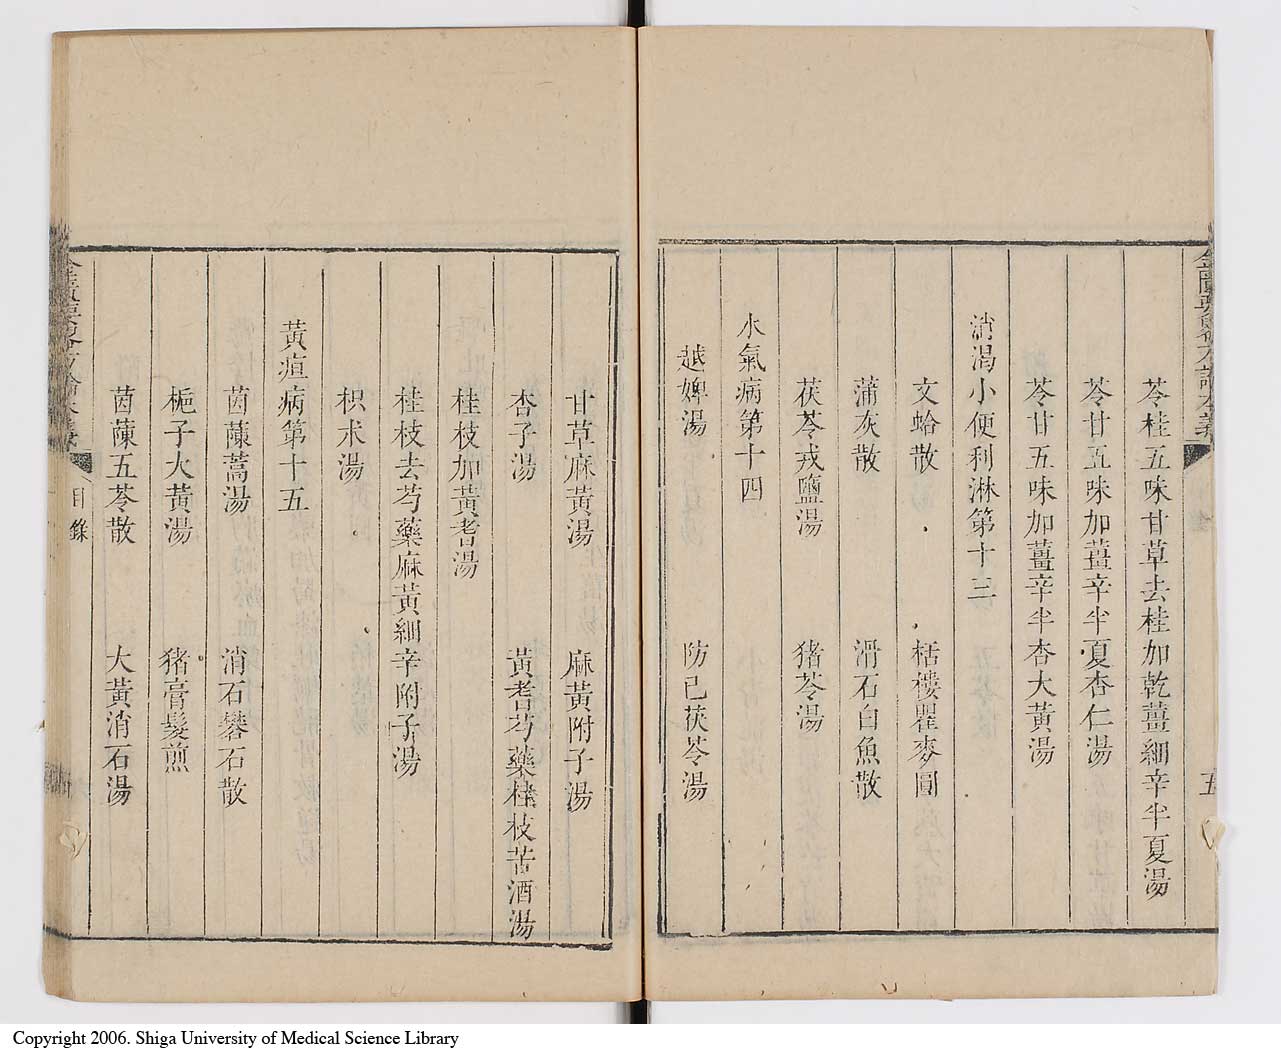 金匱要畧方論本義
五
苓桂五味甘草去桂加乾薑細辛半夏湯
苓甘五味加薑辛半夏杏仁湯
苓甘五味加薑辛半杏大黃湯
消渴小便利淋第十三
文蛤散 栝樓瞿麥圓
蒲灰散 滑石白魚散
茯苓戎鹽湯 猪苓湯
水氣病第十四
越婢湯 防己茯苓湯
甘草麻黃湯 麻黃附子湯
杏子湯 黃耆芍藥桂枝苦酒湯
桂枝加黃耆湯
桂枝去芍藥麻黃細辛附子湯
枳朮湯
黃疸病第十五
茵蔯蒿湯 消石礬石散
梔子大黃湯 猪膏髮煎
茵蔯五苓散 大黃消石湯
金匱要畧方論本義
目錄
Copyright 2006. Shiga University of Medical Science Library